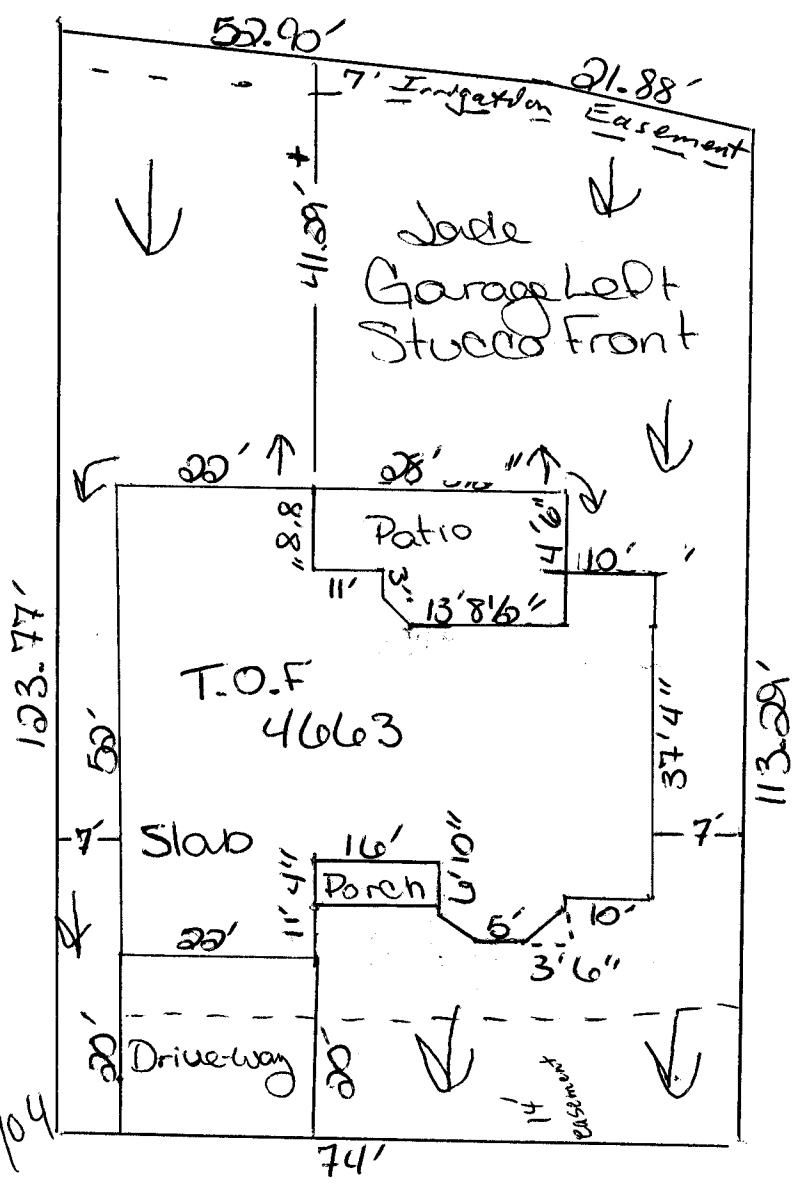 52.90'
21.88'
7' Irrigation Easement
41.29' +
Jade
Garage Left
Stucco Front
22'
28'
8'8"
Patio
4'6"
10'
11'
3'
13'8 1/2"
123.77'
T.O.F
4663
52'
37'4"
113.29'
7'
Slab
7'
16'
6'10"
11'4"
Porch
22'
5'
10'
3'6"
20'
Drive-way
20'
14'
easement
74'